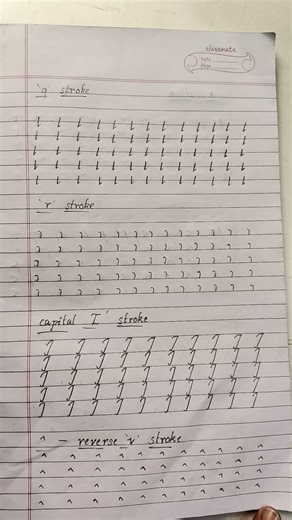 classmate
Date
Page
'q' stroke
'r' stroke
capital 'I' stroke
^ – reverse 'v' stroke